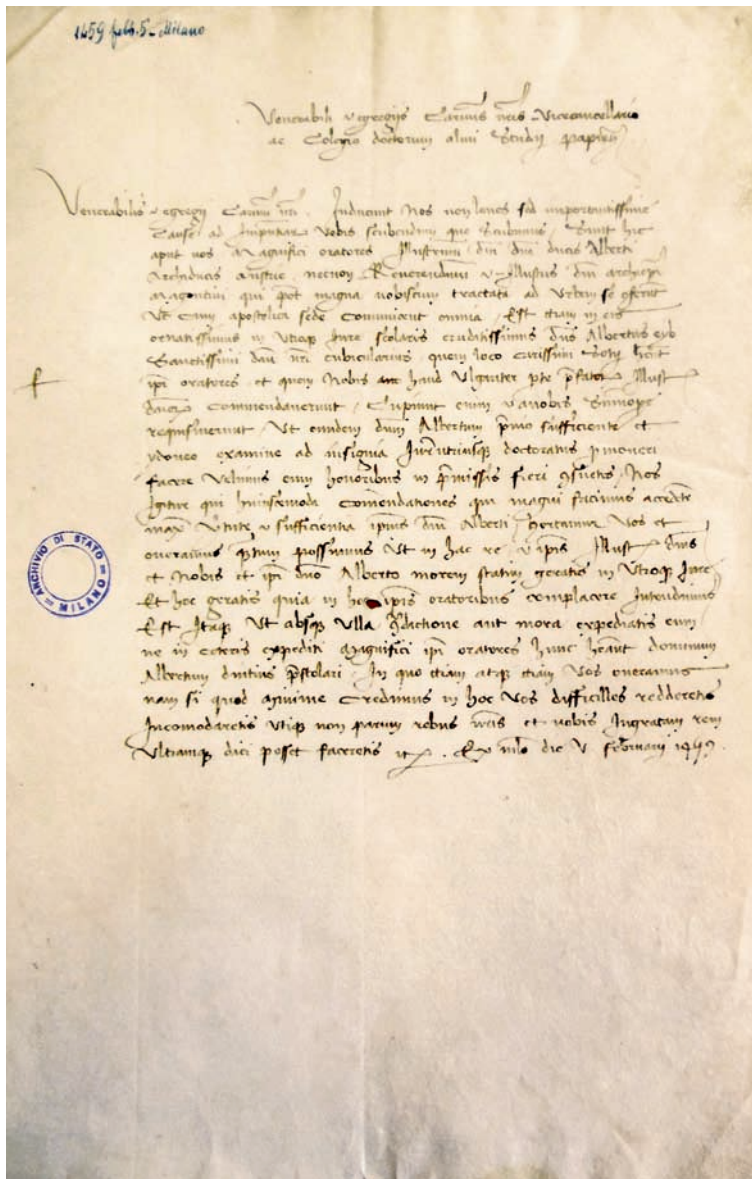 1459 febb. 5 - Milano
Venerabili et egregiis Carissimis nostris Vicecancellario
ac Colegio doctorum almi Studii papiensis
Venerabilis et egregii Carissimi nostri. Inducunt Nos non leves sed importantissime
Cause ad Vobis scribendum que Scribimus, Sunt hic
aput nos Magnifici oratores Illustrissimi dni dni ducis Alberti
Archiducis Austrie necnon Reverendissimi et Illustris dni archiepi
Magontini qui post magna nobiscum tractata ad Urbem se conferunt
Ut Cum apostolica sede Communicent omnia, Est etiam in eis
ornatissimus in Utroque Iure scolaris eruditissimus dnus Albertus eyb
Sanctissimi dni nri cubicularius, quem loco Carissimi Sotii habent
ipi oratores, et quem Nobis haud Vulgariter pte prefator Illust
ducum Commendaverunt, Cupiunt enim et a nobis Summope
requisiverunt, Ut eundem dnum Albertum primo sufficiente et
ydoneo examine ad insignia Iuris utriusque doctoratus promoveri
facere Velimus cum honoribus in premissis fieri consuetis, Nos
Igitur qui huiuscemodi Comendationes magni facimus accedente
maxime Virtute et sufficientia ipsius dni Alberti, hortamur Vos et
oneramus quantum possumus Ut in hac re et ipis Illust dnis
et Nobis et ipi dno Alberto morem statim geratis in Utroque Iure
Et hoc geratis quia in hoc ipis oratoribus complacere Intendimus
Est Itaque Ut absque Ulla aut mora expediatis eum
ne in ceteris expediti Magnifici ipi oratores hunc habeant dominum
Albertum diutius prestolari, In quo etiam atque etiam Vos oneramus
nam si quod Minime Credimus in hoc Vos difficiles redderetis
Incomodaretis Utique non parum rebus nris et nobis Ingratam rem
Ultraque dici posset faceretis etc. Ex mlo die V februarii 1459.
ARCHIVIO DI STATO
MILANO